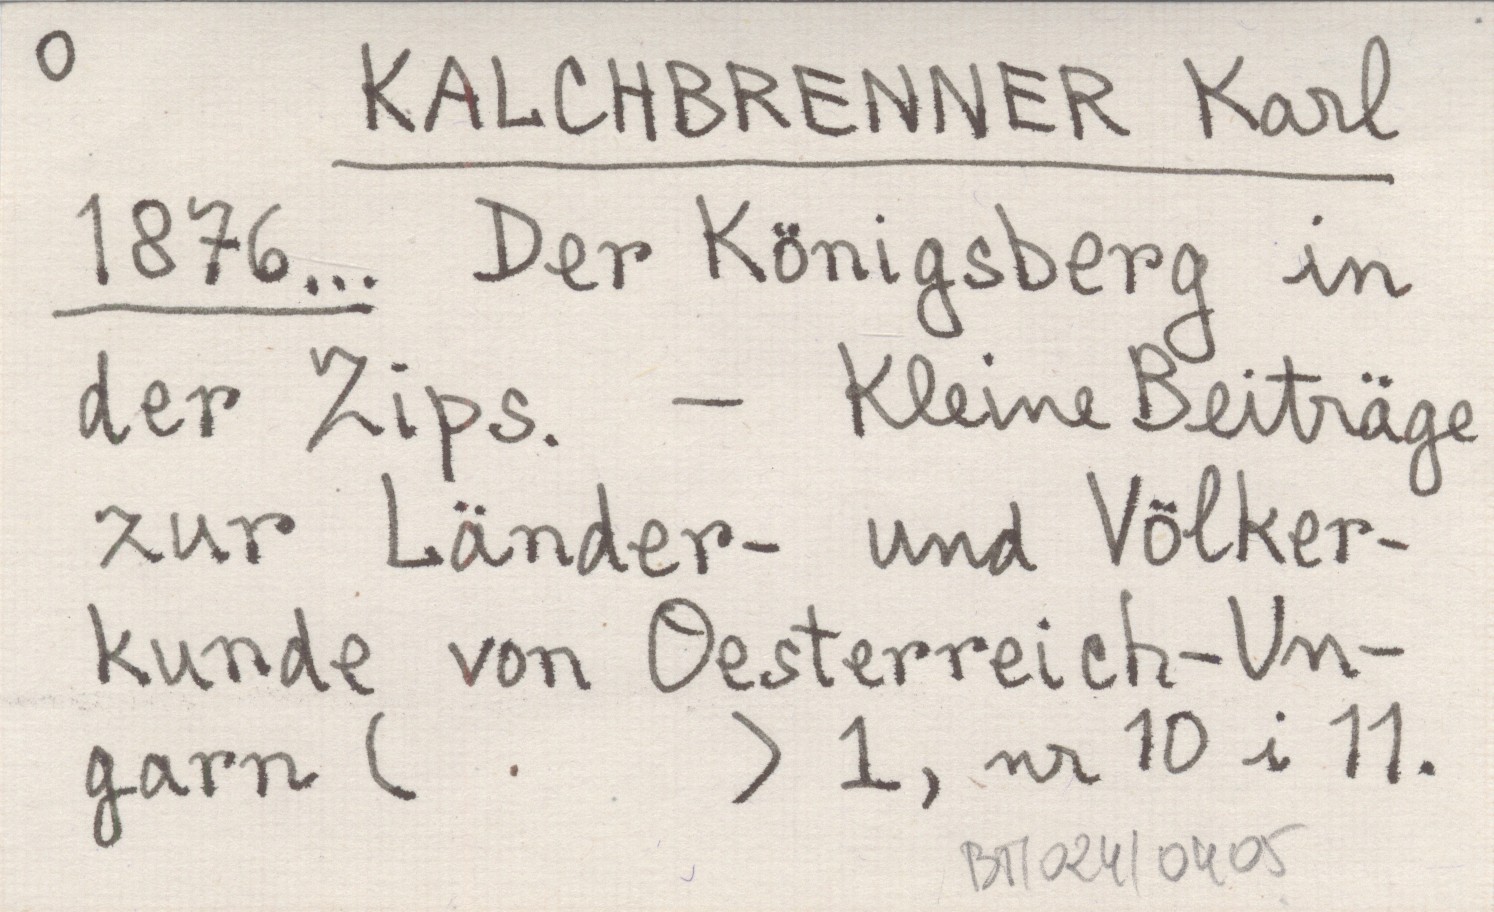 O KALCHBRENNER Karl
1876... Der Königsberg in
der Zips. – Kleine Beiträge
zur Länder- und Völker-
kunde von Oesterreich-Un-
garn ( ) 1, nr 10 i 11.
BT/024/0405